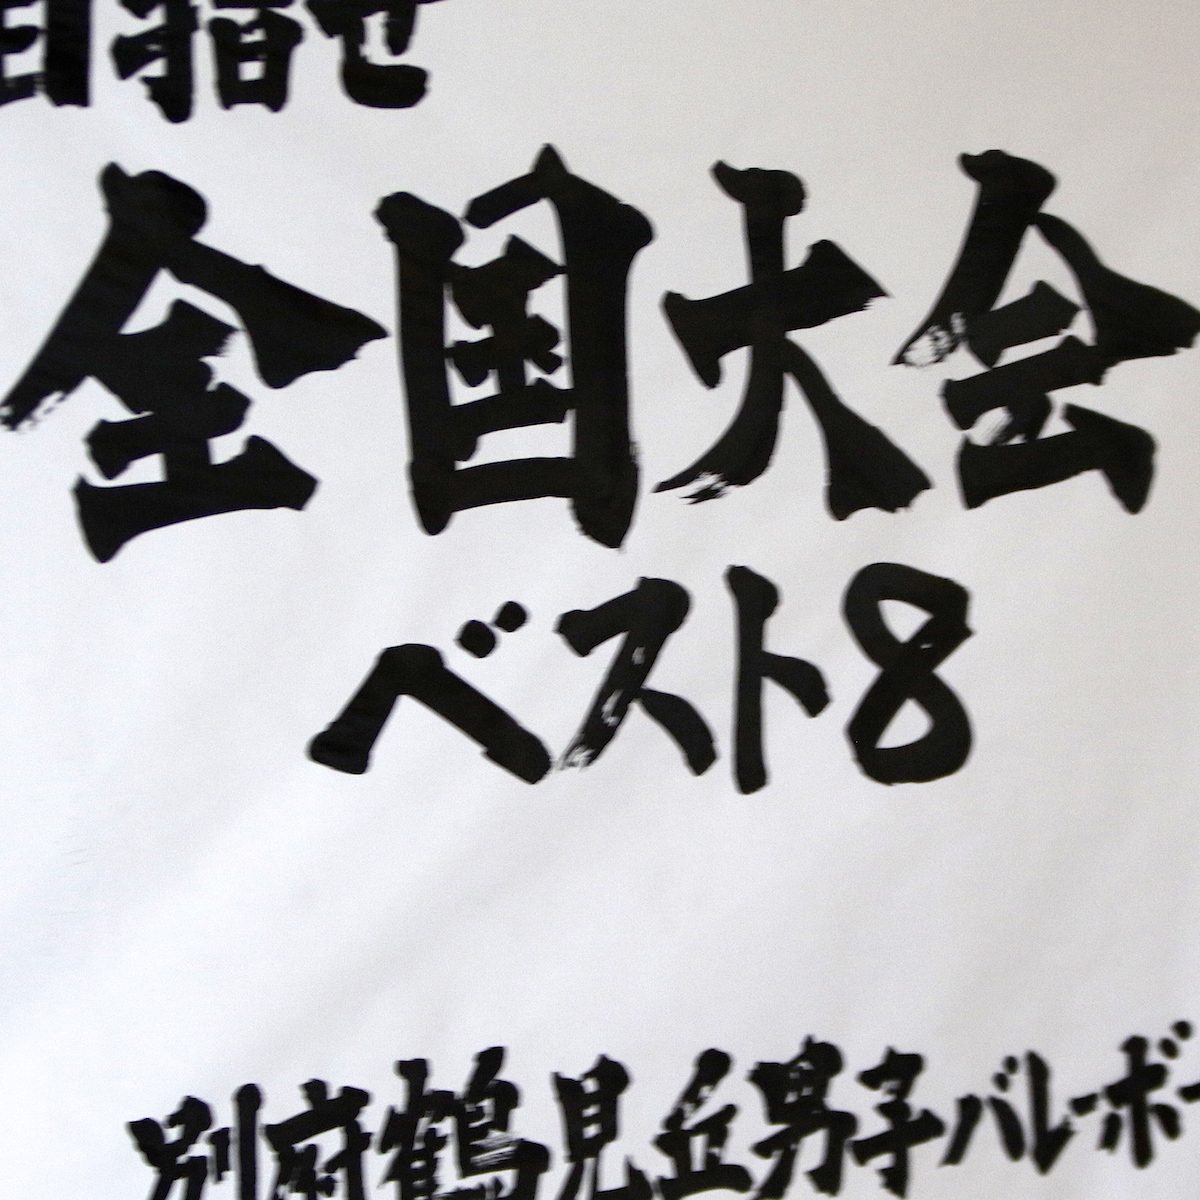 目指せ
全国大会
ベスト8
別府鶴見丘男子バレーボー